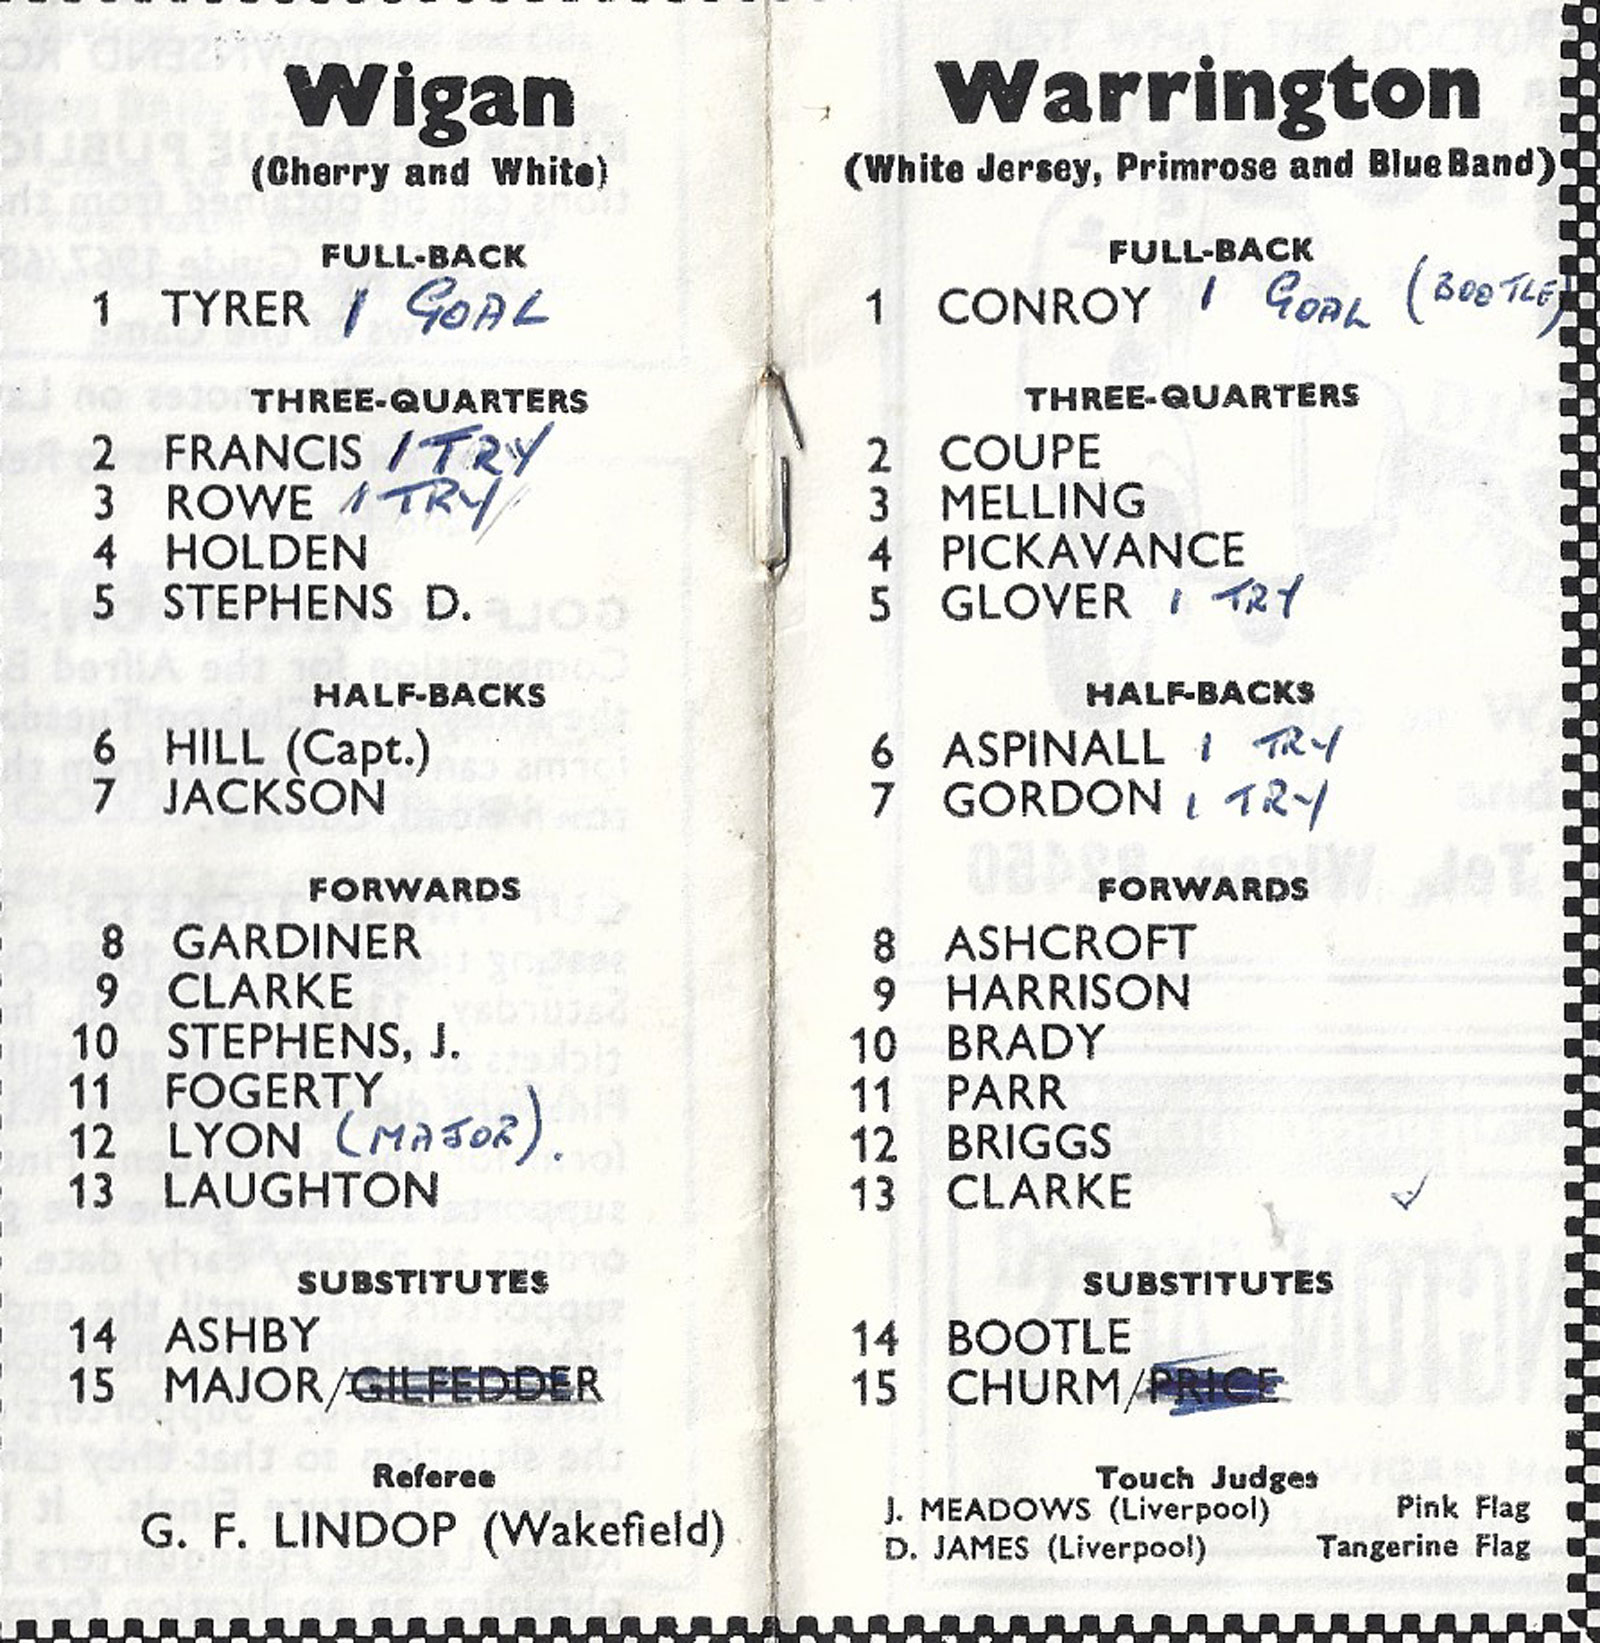 Wigan
(Cherry and White)
FULL-BACK
1 TYRER 1 GOAL
THREE-QUARTERS
2 FRANCIS 1 TRY
3 ROWE 1 TRY
4 HOLDEN
5 STEPHENS D.
HALF-BACKS
6 HILL (Capt.)
7 JACKSON
FORWARDS
8 GARDINER
9 CLARKE
10 STEPHENS, J.
11 FOGERTY
12 LYON (MAJOR).
13 LAUGHTON
SUBSTITUTES
14 ASHBY
15 MAJOR/GILFEDDER
Referee
G. F. LINDOP (Wakefield)
Warrington
(White Jersey, Primrose and Blue Band)
FULL-BACK
1 CONROY 1 GOAL (BOOTLE)
THREE-QUARTERS
2 COUPE
3 MELLING
4 PICKAVANCE
5 GLOVER 1 TRY
HALF-BACKS
6 ASPINALL 1 TRY
7 GORDON 1 TRY
FORWARDS
8 ASHCROFT
9 HARRISON
10 BRADY
11 PARR
12 BRIGGS
13 CLARKE ✓
SUBSTITUTES
14 BOOTLE
15 CHURM/PRICE
Touch Judges
J. MEADOWS (Liverpool) Pink Flag
D. JAMES (Liverpool) Tangerine Flag